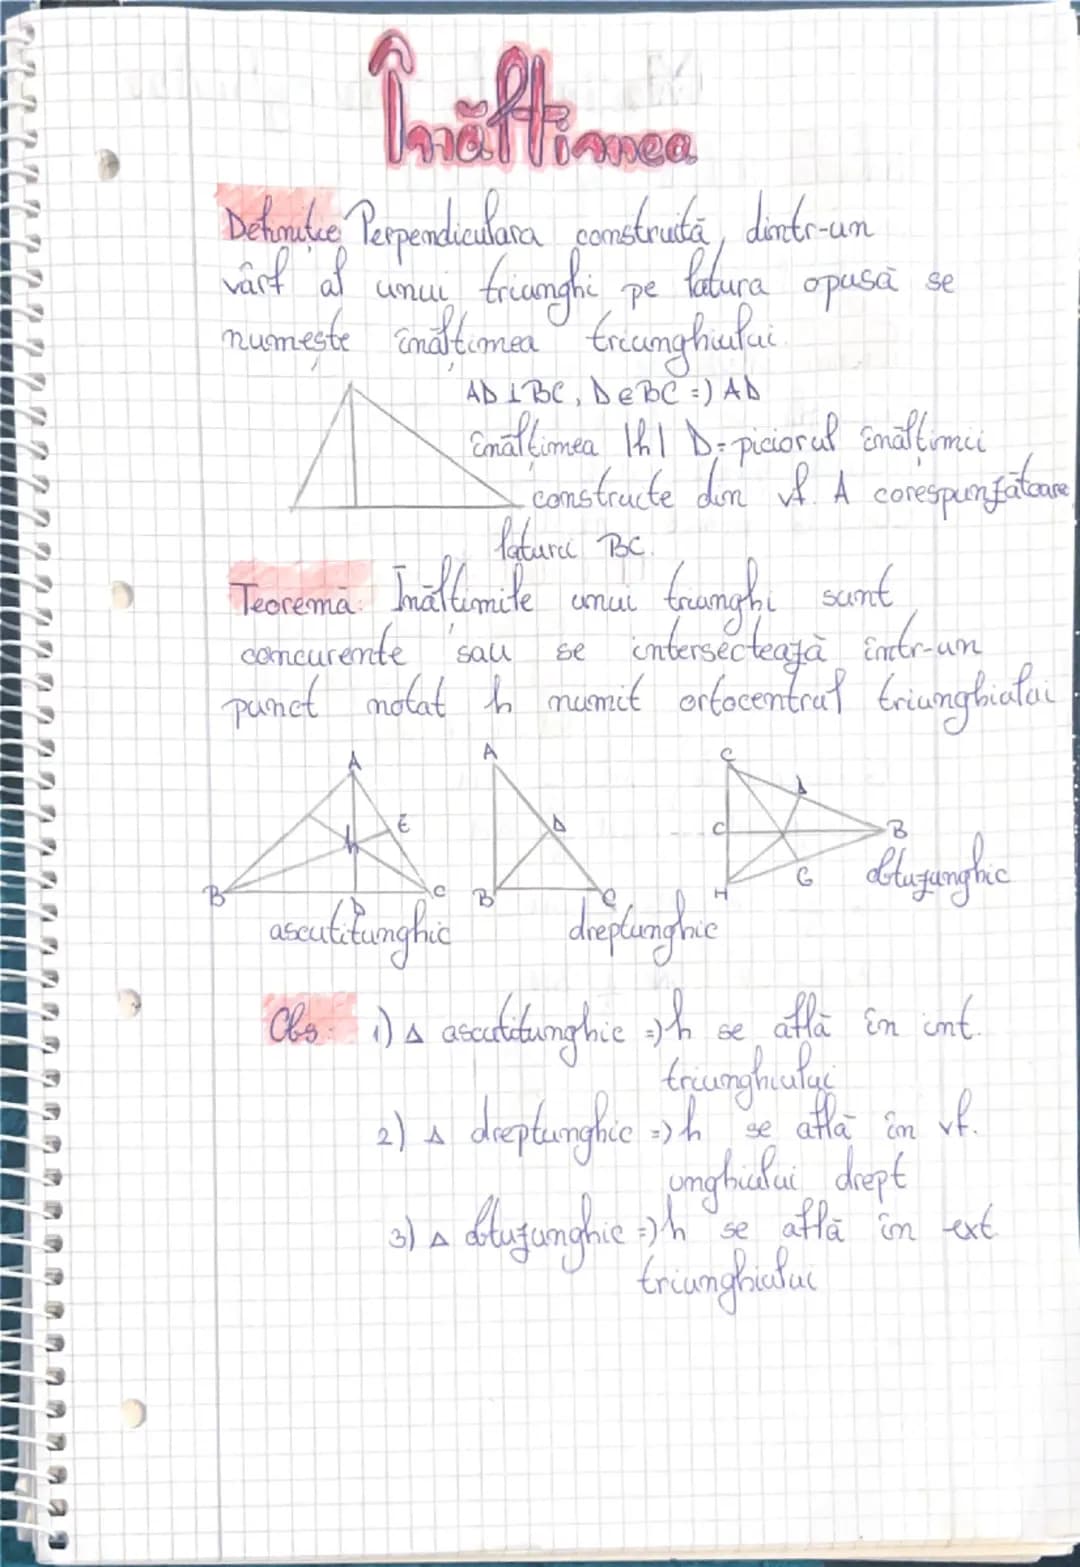 Înălțimea
Definiție Perpendiculara construită, dintr-un
vârf al unui triunghi pe latura opusă se
numește înălțimea triunghiului
AD ⊥ BC, D ∈ BC =) AD
înălțimea |h| D= piciorul înălțimii
constructe din vf. A corespunzătoare
laturii BC.
Teoremă: Înălțimile unui triunghi sunt
concurente sau se intersectează într-un
punct notat h numit ortocentrul triunghiului
A
h
E
B
D
C
ascuțitunghic
A
D
B
C
dreptunghic
C
A
C
B
G
H
obtuzunghic
Obs: 1) Δ ascutitunghic =) h se află în int.
triunghiului
2) Δ dreptunghic =) h se află în vf.
unghiului drept
3) Δ obtuzunghic =) h se află în ext
triunghiului